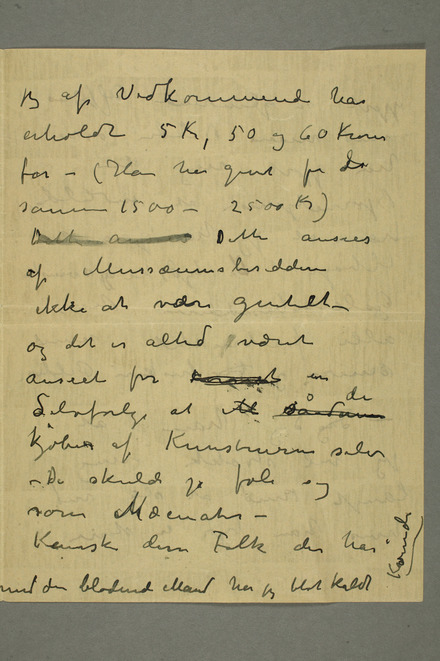 jeg af Vedkommende har
erholdt 5 Kr, 50 og 60 Kroner
for – (Han har
samme 1500 – 2500 Kr)
Dette ansees
af Musæums
ikke at være gentilt –
og det er altid været
anseet for en
Selvfølge at de
kjøber af Kunstneren selv
– De skulde jo føle sig
som Mæcenater –
Kanske disse Folk der har
med den blødende Mand har jeg blot kaldt